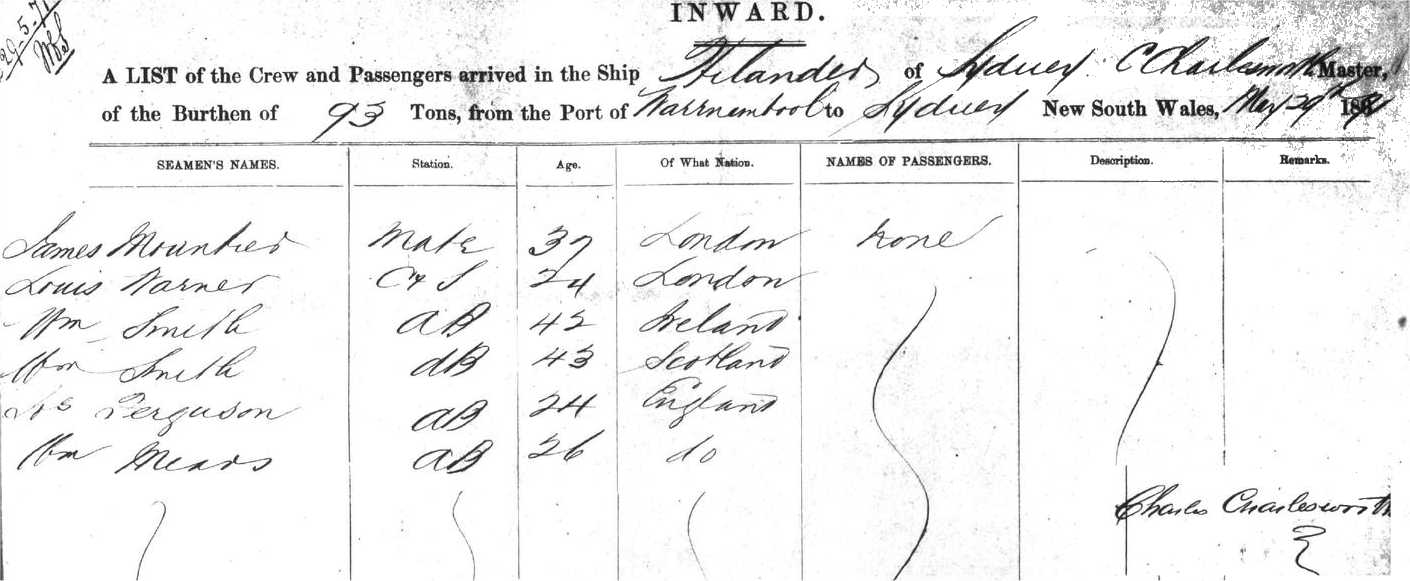 29.5.71
INWARD.
A LIST of the Crew and Passengers arrived in the Ship of Sydney C Charlesworth Master,
of the Burthen of 93 Tons, from the Port of Warrnambool to Sydney New South Wales, May 29th 187
SEAMEN'S NAMES. Station. Age. Of What Nation. NAMES OF PASSENGERS. Description. Remarks.
James Mate 37 London None
Louis Warner C & S 24 London
Wm Smith AB 42 Ireland
Wm Smith AB 43 Scotland
Ferguson AB 24 England
Wm Mears AB 26 do
Charles Charlesworth